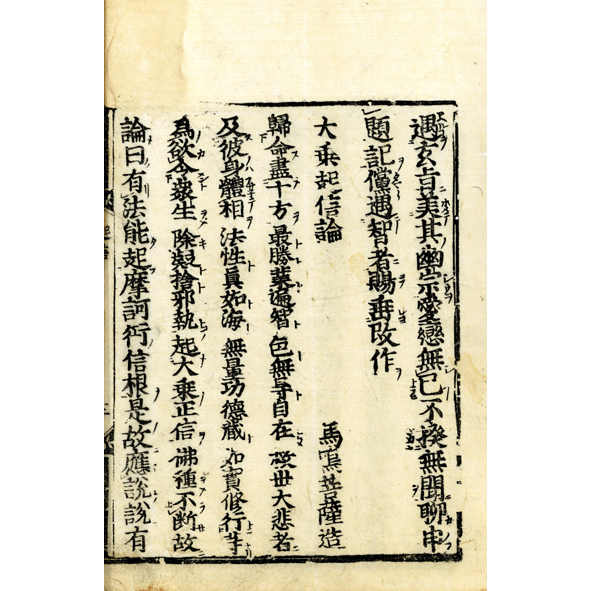 遇玄旨美其幽宗戀戀無已不揆無聞聊由
題記儻遇智者賜垂改作
大乗起信論
馬鳴菩薩造
歸命盡十方 最勝業遍智 色無导自在 救世大悲者
及彼身體相 法性真如海 無量功德藏 如實修行等
為欲令衆生 除疑捨邪執 起大乗正信 佛種不断故
論曰有法能起摩訶衍信根是故應説説有